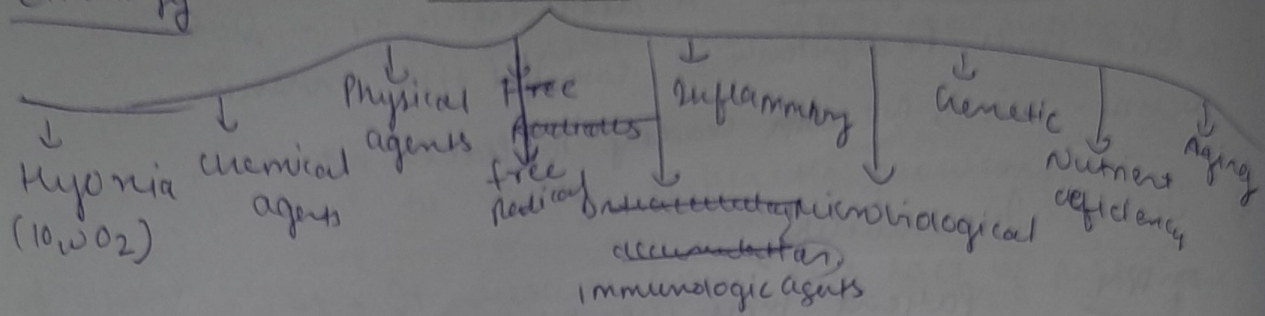 Hyonia
(10,00 O2)
chemical
agents
Physical
agents
free
Radical
Inflammary
immunologic agents
Microbiological
Genetic
Nutrient
deficiency
Aging